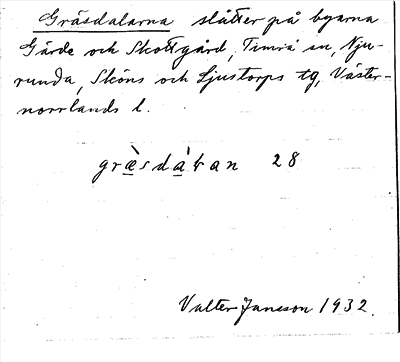 Gräsdalarna slåtter på byarna
Gärde och Skottgård, Timrå sn, Nju-
runda, Sköns och Ljustorps tg, Väster-
norrlands l.
græ̀sdàɫan 28
Valter Jansson 1932.